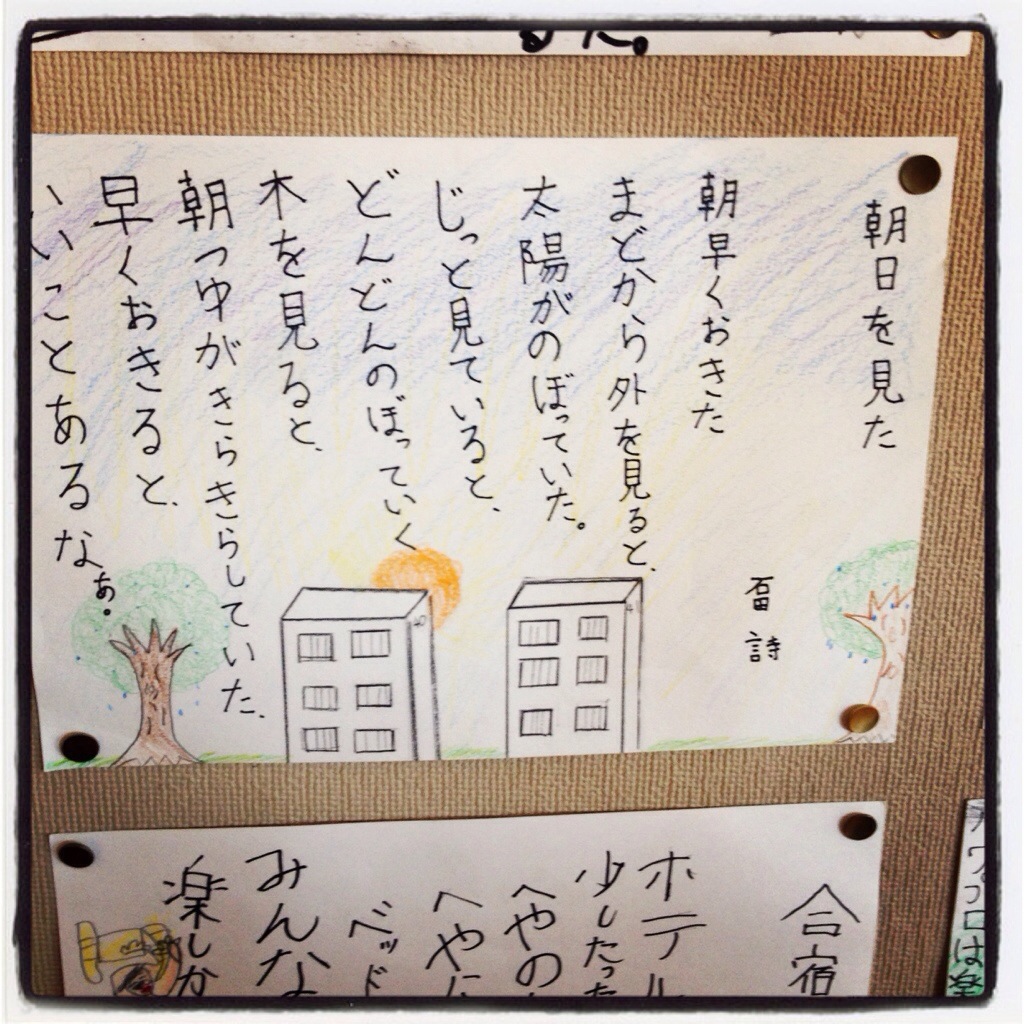 た。
朝日を見た
石田 詩
朝早くおきた
まどから外を見ると、
太陽がのぼっていた。
じっと見ていると、
どんどんのぼっていく
木を見ると、
朝つゆがきらきらしていた、
早くおきると、
いいことあるなぁ。
40
41
合宿
ホテル
少したった
へやの
へやに
ベッド
みんな
楽しか